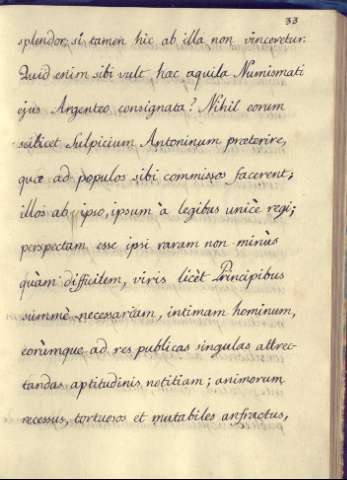 33
splendor, si tamen hic ab illa non vinceretur.
Quid enim sibi vult, hac aquila Numismati
ejus Argenteo consignata? Nihil eorum
scilicet Sulpicium Antoninum præterire,
quæ ad populos sibi commissos facerent;
illos ab ipso, ipsum à legibus unicè regi;
perspectam esse ipsi raram non minùs
quàm difficilem, viris licèt Principibus
summè necessariam, intimam hominum,
eorùmque ad res publicas singulas attrec-
tandas aptitudinis notitiam; animorum
recessus, tortuosos et mutabiles anfractus,